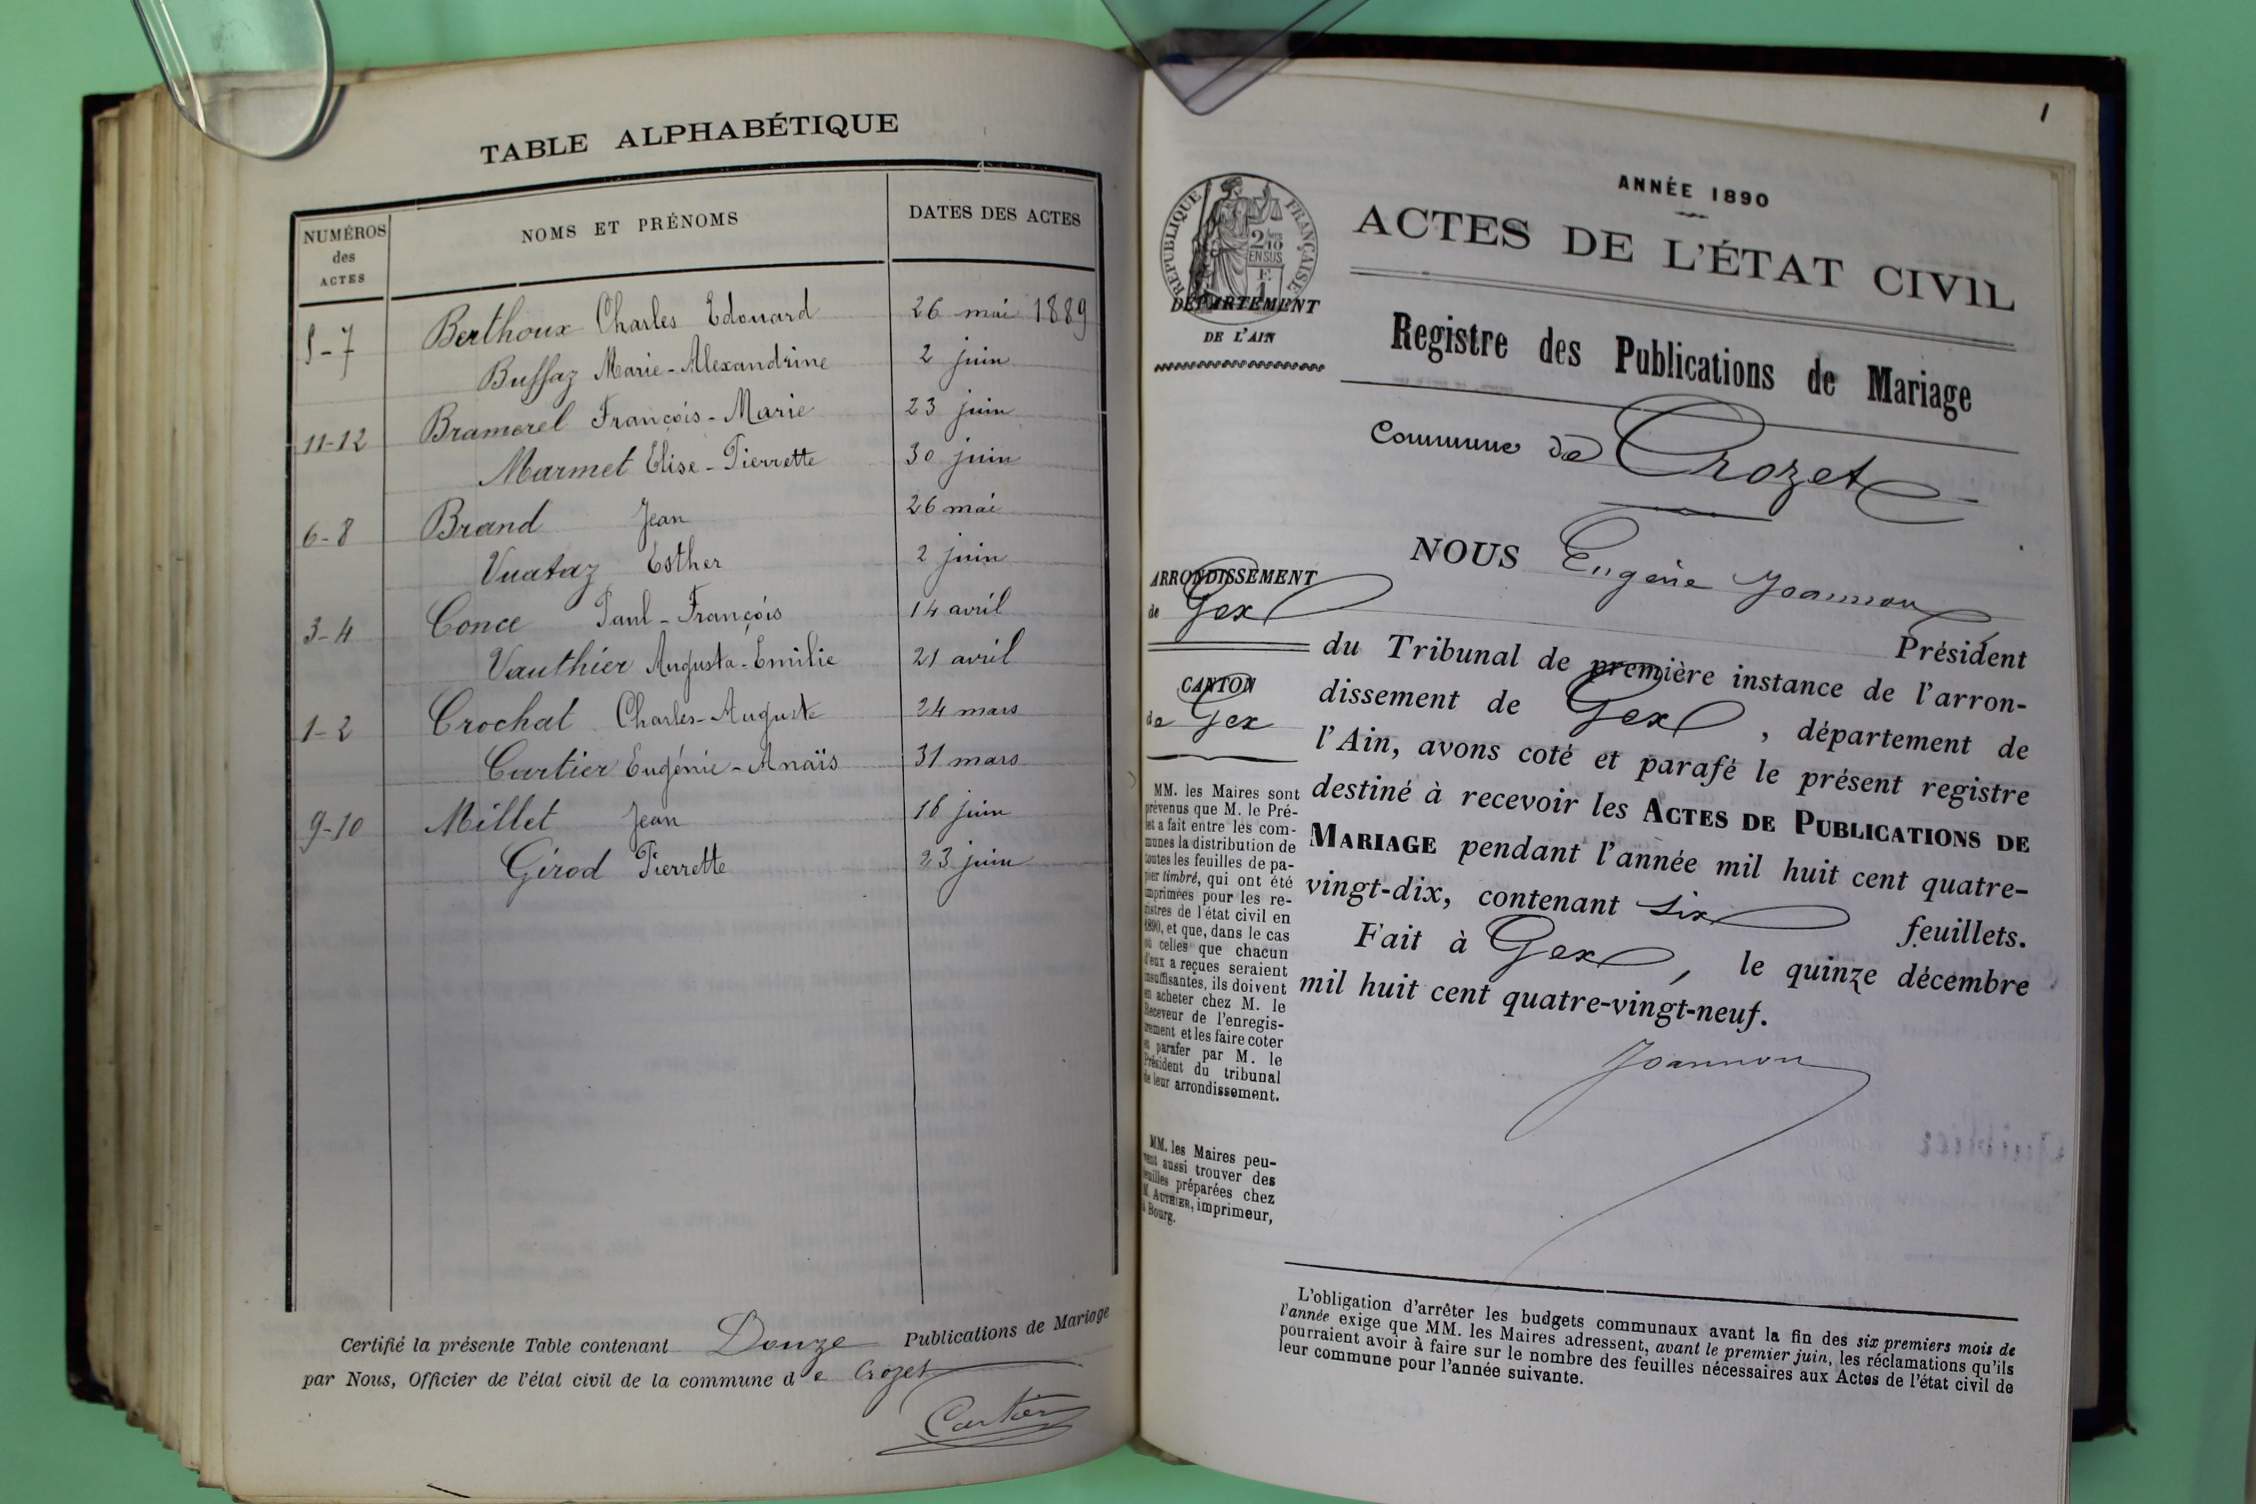 TABLE ALPHABÉTIQUE
NUMÉROS des ACTES
NOMS ET PRÉNOMS
DATES DES ACTES
5-7 Berthoux Charles Edouard 26 mai 1889
Buffaz Marie-Alexandrine 2 juin
11-12 Bramerel François-Marie 23 juin
Marmet Elise-Pierrette 30 juin
6-8 Brand Jean 26 mai
Vuataz Esther 2 juin
3-4 Conce Paul-François 14 avril
Vauthier Augusta-Emilie 21 avril
1-2 Crochat Charles-Auguste 24 mars
Cartier Eugénie-Anaïs 31 mars
9-10 Millet Jean 16 juin
Girod Pierrette 23 juin
Certifié la présente Table contenant Douze Publications de Mariage
par Nous, Officier de l'état civil de la commune de Crozet
Cartier
1
ANNÉE 1890
ACTES DE L'ÉTAT CIVIL
RÉPUBLIQUE FRANÇAISE
2/10 EN SUS
DÉPARTEMENT
DE L'AIN
Registre des Publications de Mariage
Commune de Crozet
ARRONDISSEMENT
de Gex
CANTON
de Gex
NOUS Eugène Joannon
Président
du Tribunal de première instance de l'arron-
dissement de Gex, département de
l'Ain, avons coté et parafé le présent registre
destiné à recevoir les ACTES DE PUBLICATIONS DE
MARIAGE pendant l'année mil huit cent quatre-
vingt-dix, contenant six feuillets.
Fait à Gex, le quinze décembre
mil huit cent quatre-vingt-neuf.
Joannon
MM. les Maires sont
prévenus que M. le Pré-
fet a fait entre les com-
munes la distribution de
toutes les feuilles de pa-
pier timbré, qui ont été
imprimées pour les re-
gistres de l'état civil en
1890, et que, dans le cas
où celles que chacun
d'eux a reçues seraient
insuffisantes, ils doivent
en acheter chez M. le
Receveur de l'enregis-
trement et les faire coter
et parafer par M. le
Président du tribunal
de leur arrondissement.
MM. les Maires peu-
vent aussi trouver des
feuilles préparées chez
M. AUTHIER, imprimeur,
à Bourg.
L'obligation d'arrêter les budgets communaux avant la fin des six premiers mois de
l'année exige que MM. les Maires adressent, avant le premier juin, les réclamations qu'ils
pourraient avoir à faire sur le nombre des feuilles nécessaires aux Actes de l'état civil de
leur commune pour l'année suivante.